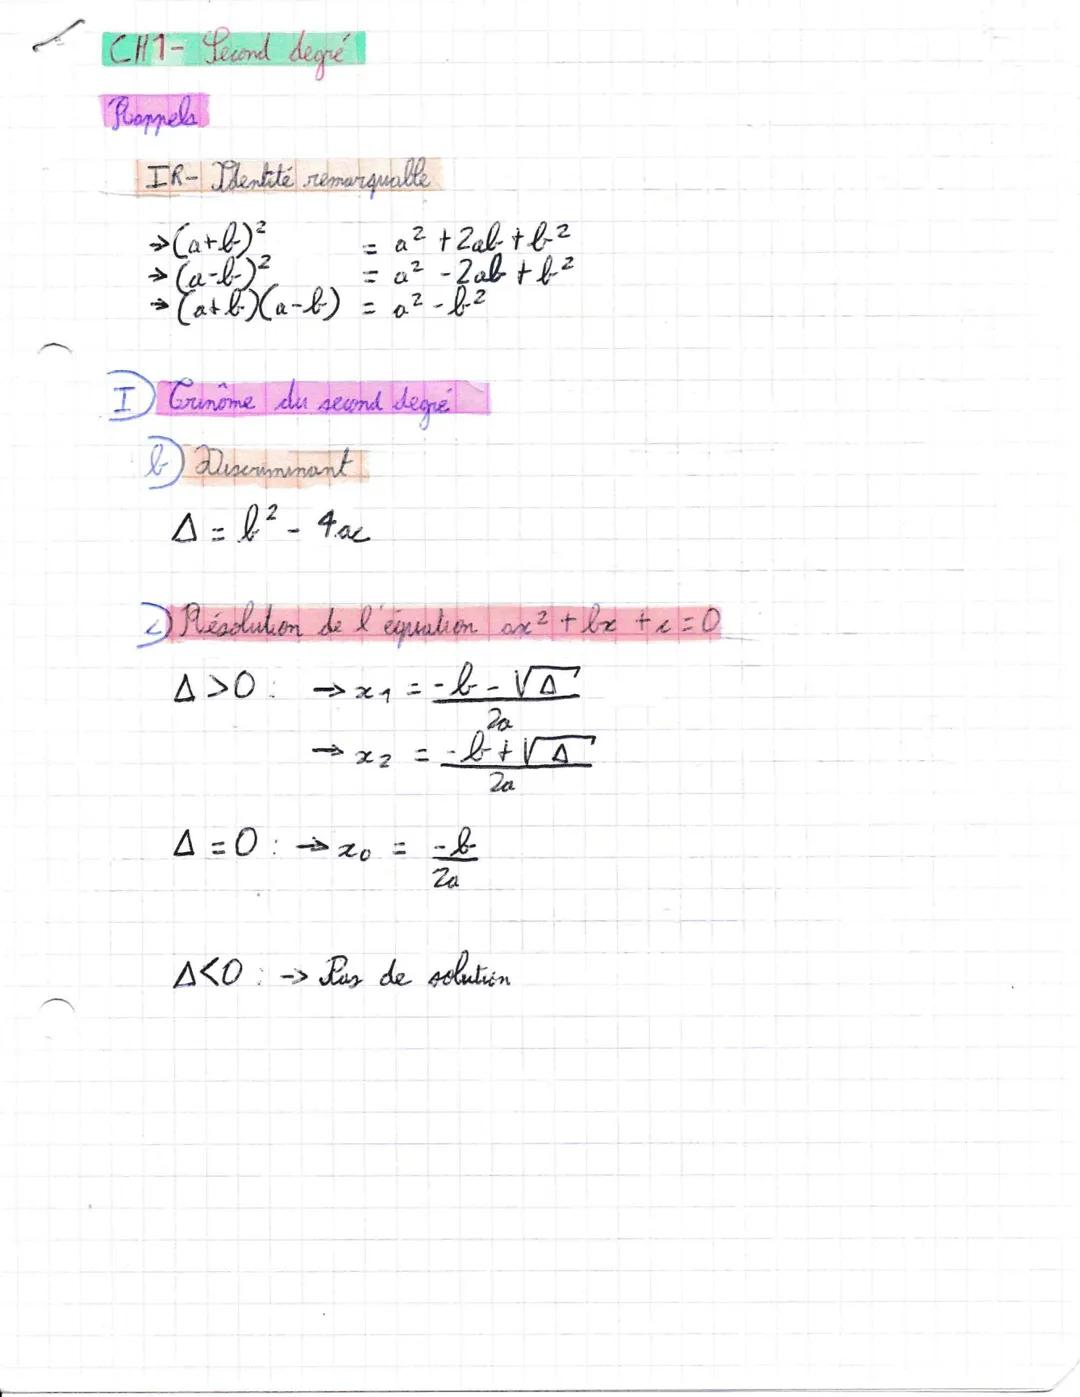 CH1- Second degré
Rappels
IR- Identité remarquable
→(a+b)² = a² + 2ab + b²
→(a-b)² = a² - 2ab + b²
→(a+b)(a-b) = a² - b²
I) Trinôme du second degré
b) Discriminant
Δ = b² - 4ac
2) Résolution de l'équation ax² + bx + c = 0
Δ>0 : → x₁ = (-b - √Δ)/2a
→ x₂ = (-b + √Δ)/2a
Δ = 0 : → x₀ = -b/2a
Δ<0 : → Pas de solution